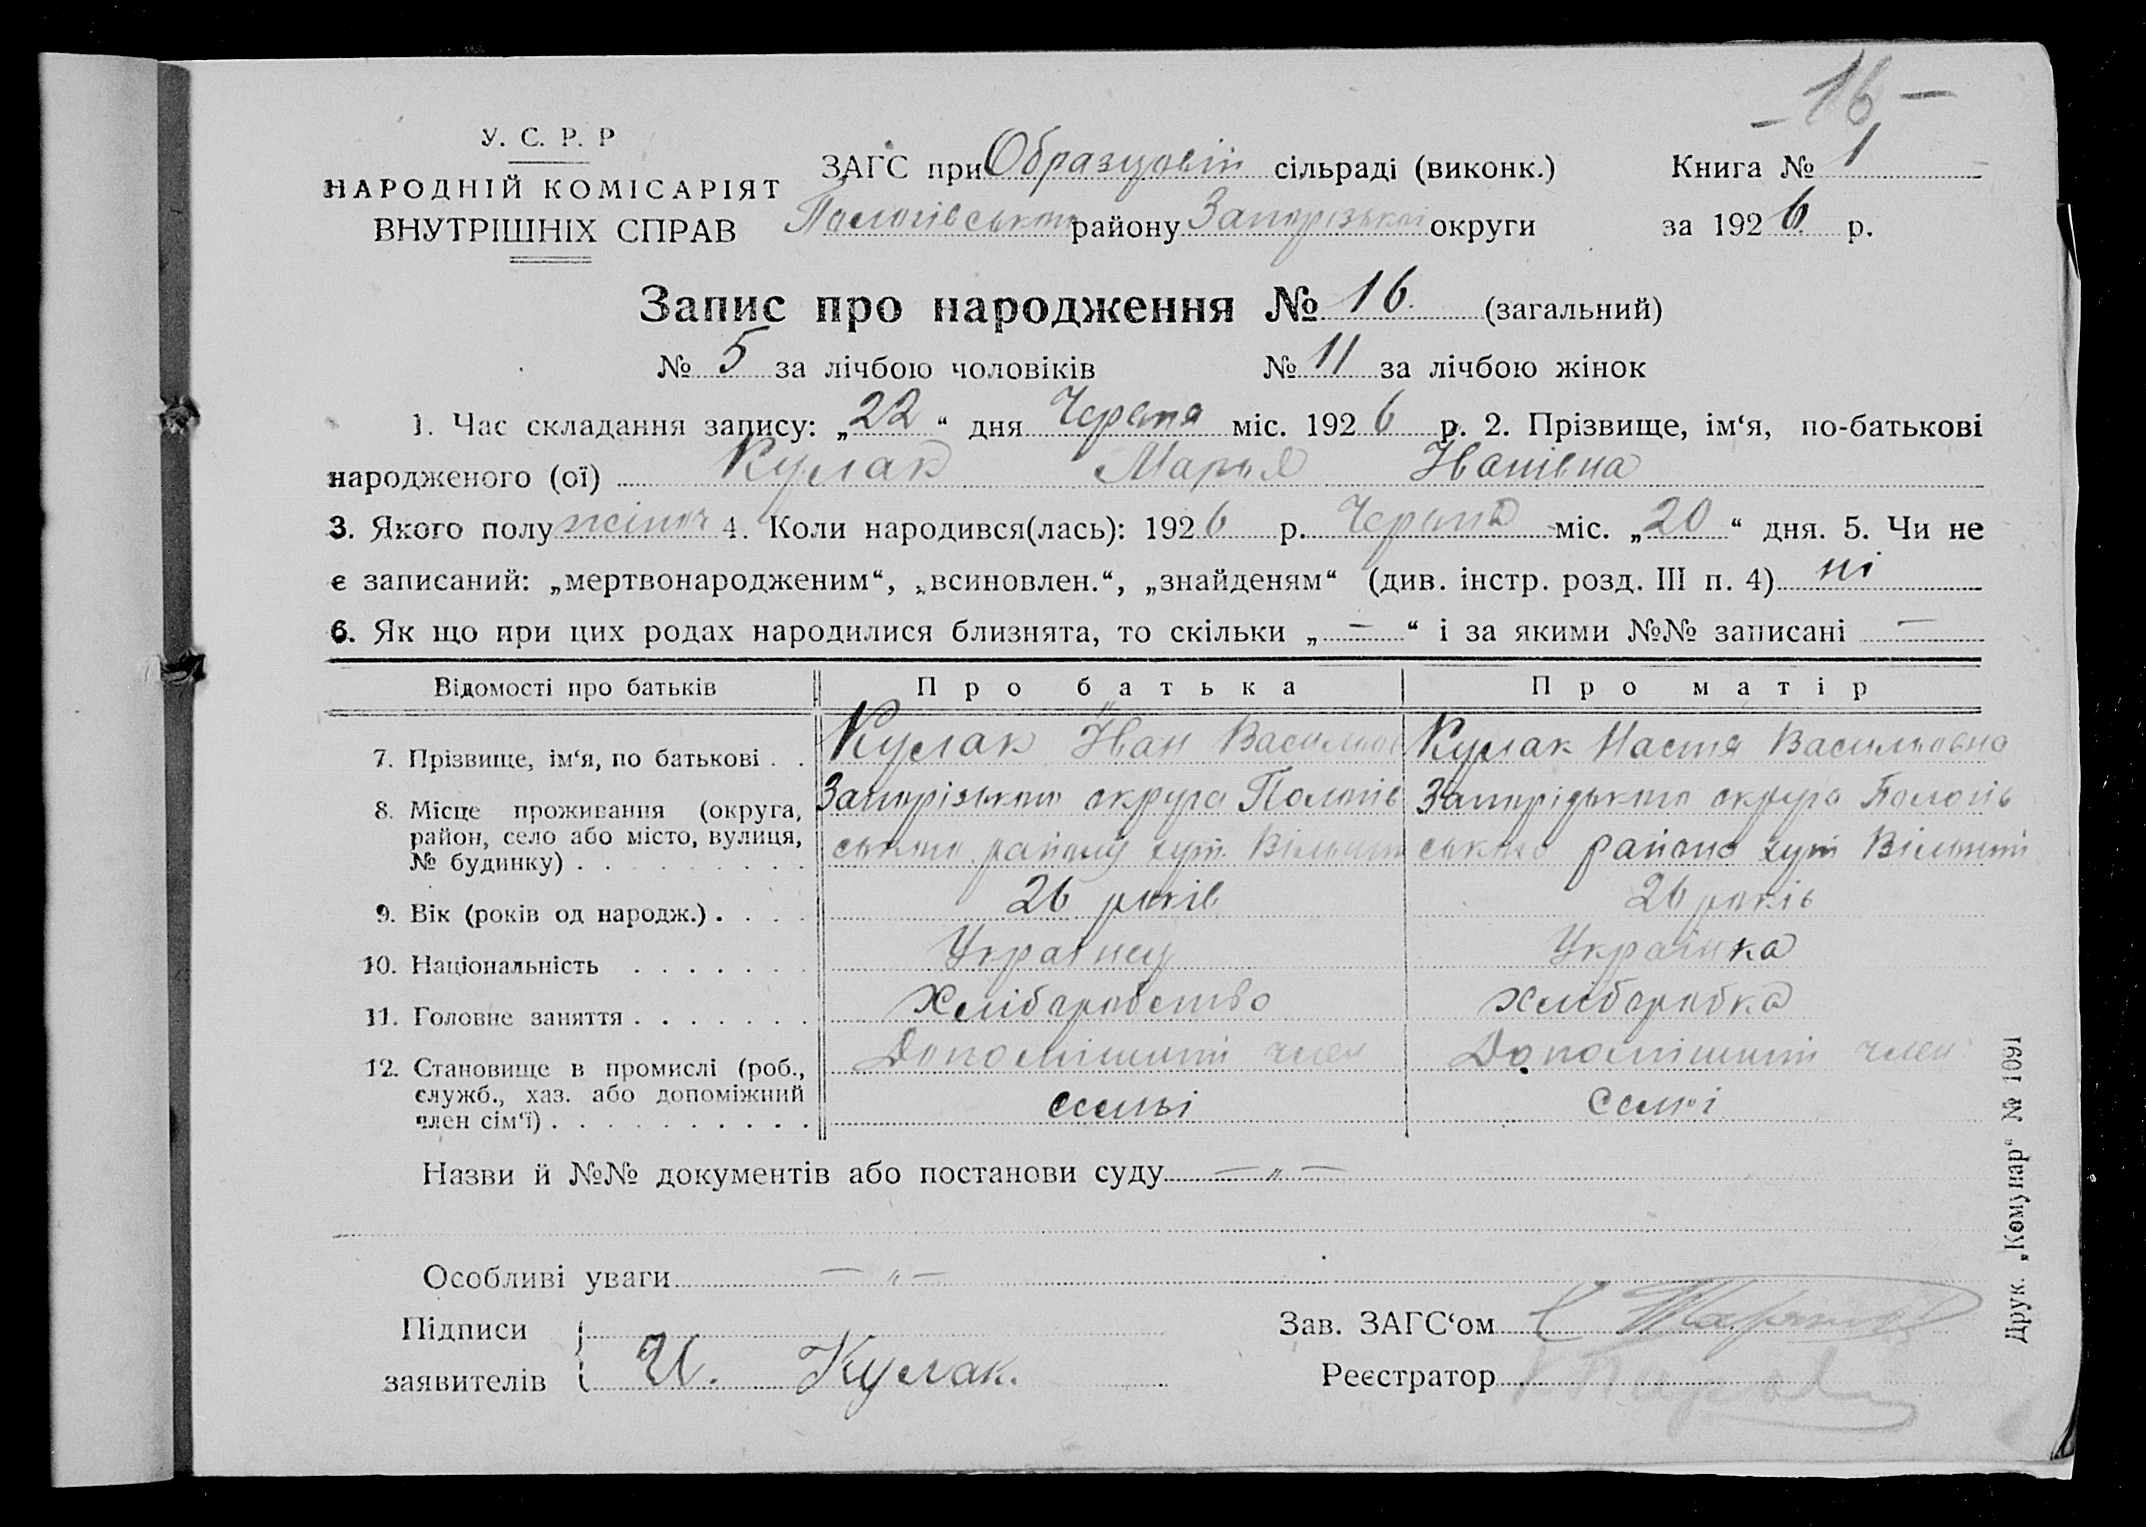 -16-
У. С. Р. Р
НАРОДНІЙ КОМІСАРІЯТ
ВНУТРІШНІХ СПРАВ
ЗАГС при Образцовій сільраді (виконк.) Книга № 1
Пологівського району Запорізької округи за 1926 р.
Запис про народження № 16. (загальний)
№ 5 за лічбою чоловіків № 11 за лічбою жінок
1. Час складання запису: „22“ дня Червня міс. 1926 р. 2. Прізвище, ім‘я, по-батькові
народженого (ої) Кулак Марья Іванівна
3. Якого полу жіноч 4. Коли народився(лась): 1926 р. Червня міс. „20“ дня. 5. Чи не
є записаний: „мертвонародженим“, „всиновлен.“, „знайденям“ (див. інстр. розд. III п. 4) ні
6. Як що при цих родах народилися близнята, то скільки „—“ і за якими №№ записані —
Відомості про батьків Про батька Про матір
7. Прізвище, ім‘я, по батькові . . Кулак Іван Васильов Кулак Настя Васильовна
8. Місце проживання (округа, Запорізького округа Пологів Запорідького округа Пологів
район, село або місто, вулиця, ського району хут. ського района хут
№ будинку) . . . . . . . . .
9. Вік (років од народж.) . . . . 26 років 26 років
10. Національність . . . . . . . Українец Українка
11. Головне заняття . . . . . . . Хліборобство хліборобка
12. Становище в промислі (роб., Допоміжний член Допоміжний член
служб., хаз. або допоміжний семьі семьі
член сім‘ї) . . . . . . . . . .
Назви й №№ документів або постанови суду — „ —
Особливі уваги — „ —
Підписи Зав. ЗАГС‘ом
заявителів И. Кулак. Реєстратор
Друк. „Комунар“ № 1091